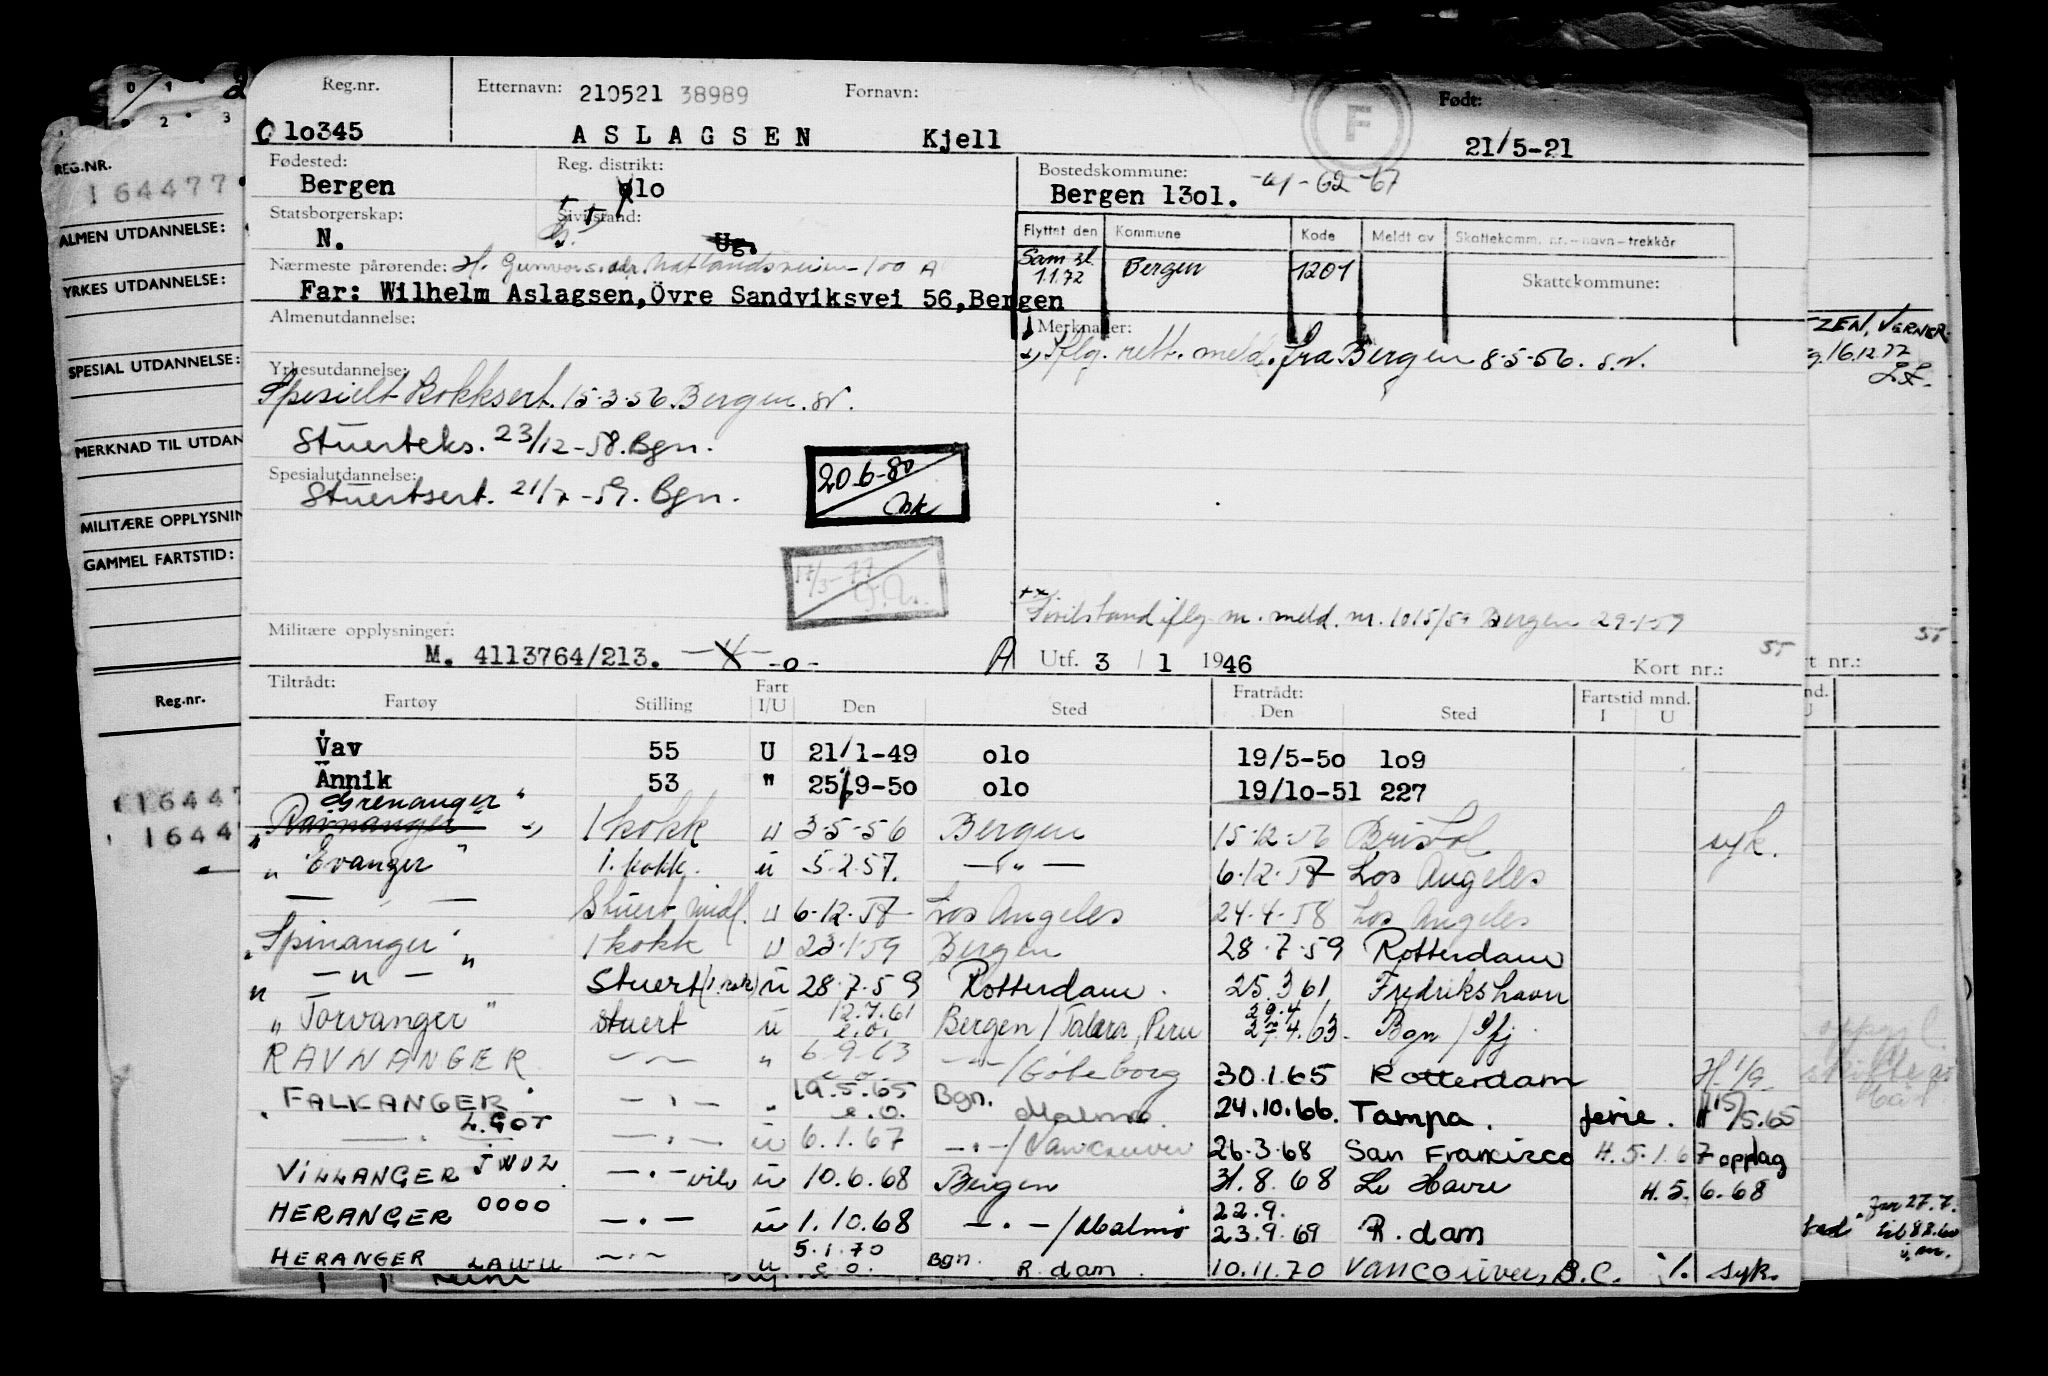 Reg.nr. Etternavn: 210521 38989 Fornavn: F Født:
O lo345 ASLAGSEN Kjell 21/5-21
Fødested: Reg. distrikt: Bostedskommune:
Bergen olo Bergen 13ol. -62-67
Statsborgerskap: Sivilstand:
N. Ug.
Flyttet den Kommune Kode Meldt av Skattekomm. nr.-navn-trekkår
1.1.72 Bergen 1201 Skattekommune:
Nærmeste pårørende:
Far: Wilhelm Aslagsen, Övre Sandviksvei 56, Bergen
Almenutdannelse: Merknader:
Iflg. rett. meld. fra Bergen 8-5-56. s.N.
Yrkesutdannelse:
Spesielt kokksert. 15-3-56 Bergen. sN.
Stuerteks. 23/12-58. Bgn.
Spesialutdannelse:
Stuertsert. 21/7-59. Bgn.
20.6-80
Sivilstand iflg. m. meld. nr. 1015/59 Bergen 29-1-59
Militære opplysninger:
M. 4113764/213. -o- A Utf. 3 / 1 1946 Kort nr.: 55
Tiltrådt: Fratrådt: Fartstid mnd.
Fartøy Stilling Fart I/U Den Sted Den Sted I U
Vav 55 U 21/1-49 olo 19/5-50 lo9
Annik 53 " 25/9-50 olo 19/lo-51 227
Grenanger"
"Ravnanger" 1 kokk u 3-5-56 Bergen 15-12-56 Bristol syk.
"Evanger" 1. kokk. u 5.2.57. — " — 6.12.57 Los Angeles
— " — Stuert midl. u 6.12.57 Los Angeles 24.4.58 Los Angeles
"Spinanger" 1 kokk u 23-1-59 Bergen 28.7.59 Rotterdam
" — " — " Stuert u 28.7.59 Rotterdam. 25.3.61 Fredrikshavn
"Torvanger" stuert u 12.7.61 e.o. Bergen / Talara, Peru 29.4 4.63. Bgn /
RAVNANGER — " — " 6-9-63 — " — /Göteborg 30.1.65 Rotterdam
"FALKANGER" — " — " 19.5.65 e.o. Bgn. Malmö. 24.10.66. Tampa. ferie. 15/5.65
— " — LGOT — " — u 6.1.67 — " — /Vancouver 26.3.68 San Francisco H. 5.1.67 opplag
VILLANGER JWUZ — " — vik u 10.6.68 Bergen 31.8.68 Le Havre H. 5.6.68
HERANGER 0000 — " — u 1.10.68 — " — /Malmö 22.9. 23.9.69 R.dam
HERANGER LAWU — " — u 5.1.70 e.o. Bgn. R.dam. 10.11.70 Vancouver, B.C. syk.
REG.NR.
164477
ALMEN UTDANNELSE:
YRKES UTDANNELSE:
SPESIAL UTDANNELSE:
MERKNAD TIL UTDAN
MILITÆRE OPPLYSNIN
GAMMEL FARTSTID:
Reg.nr.
16447
1644
ZEN, VERNER
16.12.77
55
rt nr.:
nd.
U